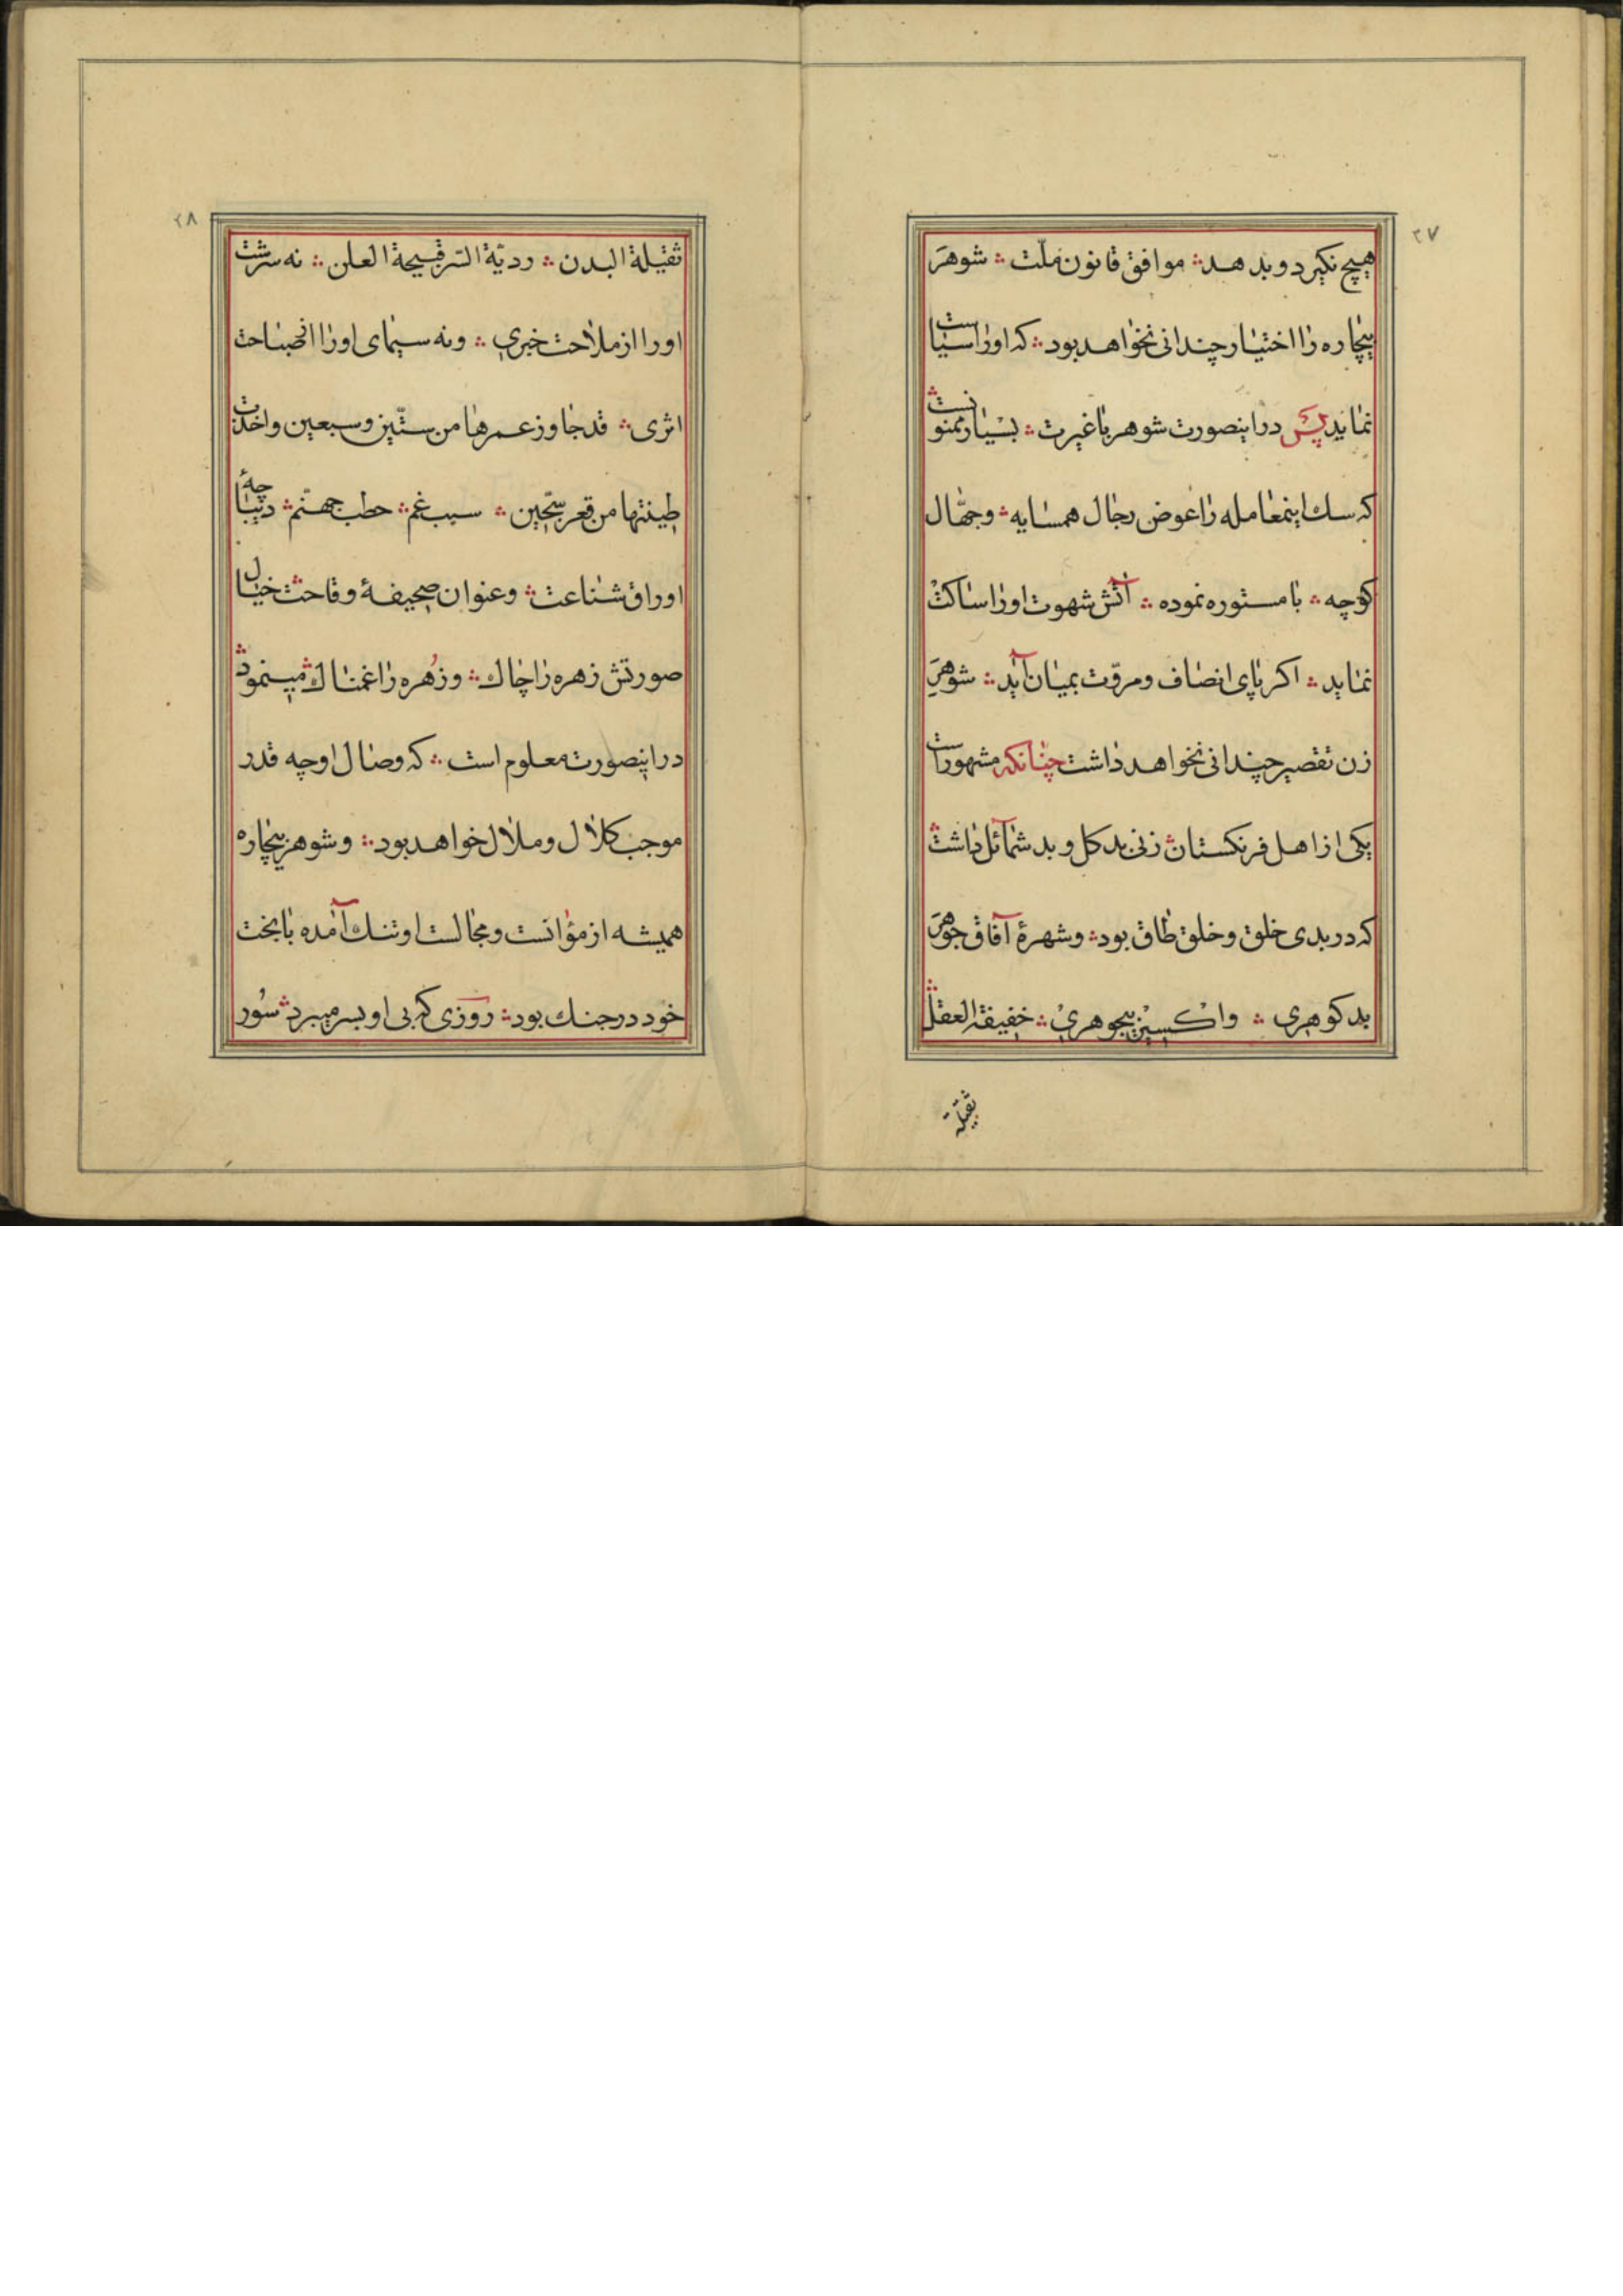 ۲۷
هیچ نکیرد و بدهد ؞ موافق قانون ملّت ؞ شوهر
بیچاره را اختیار چندانی نخواهد بود ؞ که او را سیاست
نماید پس در اینصورت شوهر با غیرت ؞ بسیار ممنونست ؞
که سك اینمعامله را عوض رجال همسایه ؞ و جهّال
کوچه ؞ با مستوره نموده ؞ آتش شهوت او را ساکت
نماید ؞ اکر پای انصاف و مروّت بمیان آید ؞ شوهر
زن تقصیر چندانی نخواهد داشت چنانکه مشهور است
یکی از اهل فرنکستان ؞ زنی بد کل و بد شمائل داشت ؞
که در بدی خلق و خلق طاق بود ؞ و شهرهٔ آفاق جوهر
بد کوهری ؞ و اکسیز بیجوهری ؞ خفیفة العقل ؞
ثقیلة
۲۸
ثقیلة البدن ؞ ردیّة السّر قبیحة العلن ؞ نه سرشت
او را از ملاحت خبری ؞ و نه سیمای او را از صباحت
اثری ؞ قد جاوز عمرها من ستّین و سبعین و اخذت
طینتها من قعر سجّین ؞ سبب غم ؞ حطب جهنّم ؞ دیباچهٔ
اوراق شناعت ؞ و عنوان صحیفهٔ وقاحت ؞ خیال
صورتش زهره را چاك ؞ و زُهره را غمناك ؞ مینمود ؞
در اینصورت معلوم است ؞ که وصال او چه قدر
موجب کلال و ملال خواهد بود ؞ و شوهر بیچاره
همیشه از مؤانست و مجالست او تنك آمده با بخت
خود در جنك بود ؞ روزی که بی او بسر میبرد ؞ سُور